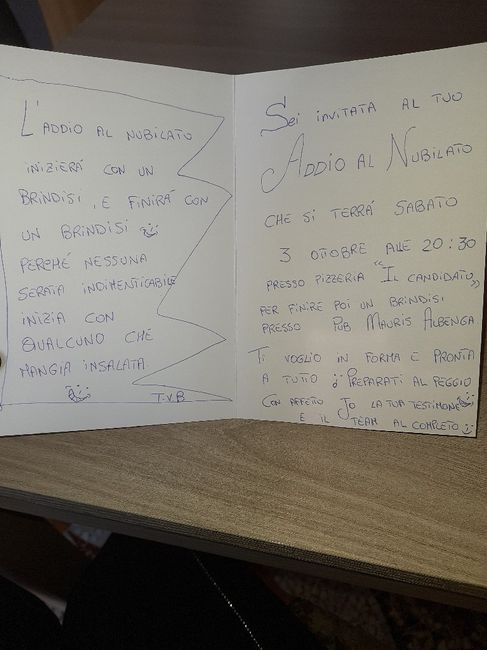 L'ADDIO AL NUBILATO
INIZIERÁ CON UN
BRINDISI, E FINIRÁ CON
UN BRINDISI
PERCHÉ NESSUNA
SERATA INDIMENTICABILE
INIZIA CON
QUALCUNO CHE
MANGIA INSALATA.
T.V.B
SEI INVITATA AL TUO
ADDIO AL NUBILATO
CHE SI TERRÁ SABATO
3 OTTOBRE ALLE 20:30
PRESSO PIZZERIA "IL CANDIDATO"
PER FINIRE POI UN BRINDISI
PRESSO PUB MAURIS ALBENGA
TI VOGLIO IN FORMA E PRONTA
A TUTTO PREPARATI AL PEGGIO
CON AFFETTO JO LA TUA TESTIMONE
E IL TEAM AL COMPLETO